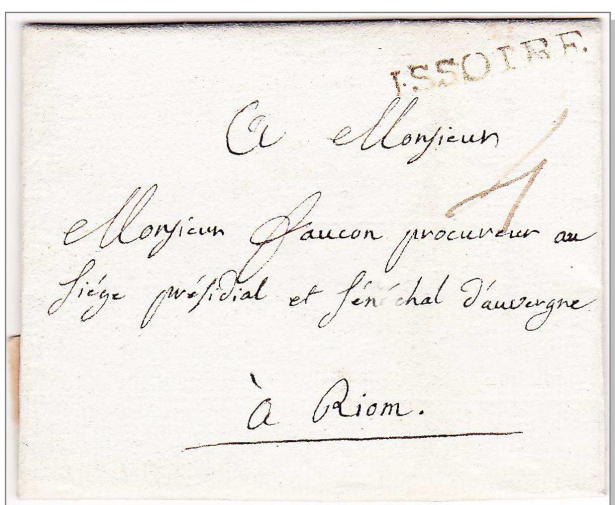 ISSOIRE.
A Monsieur
4
Monsieur Faucon procureur au
siége présidial et sénéchal d'auvergne
à Riom.